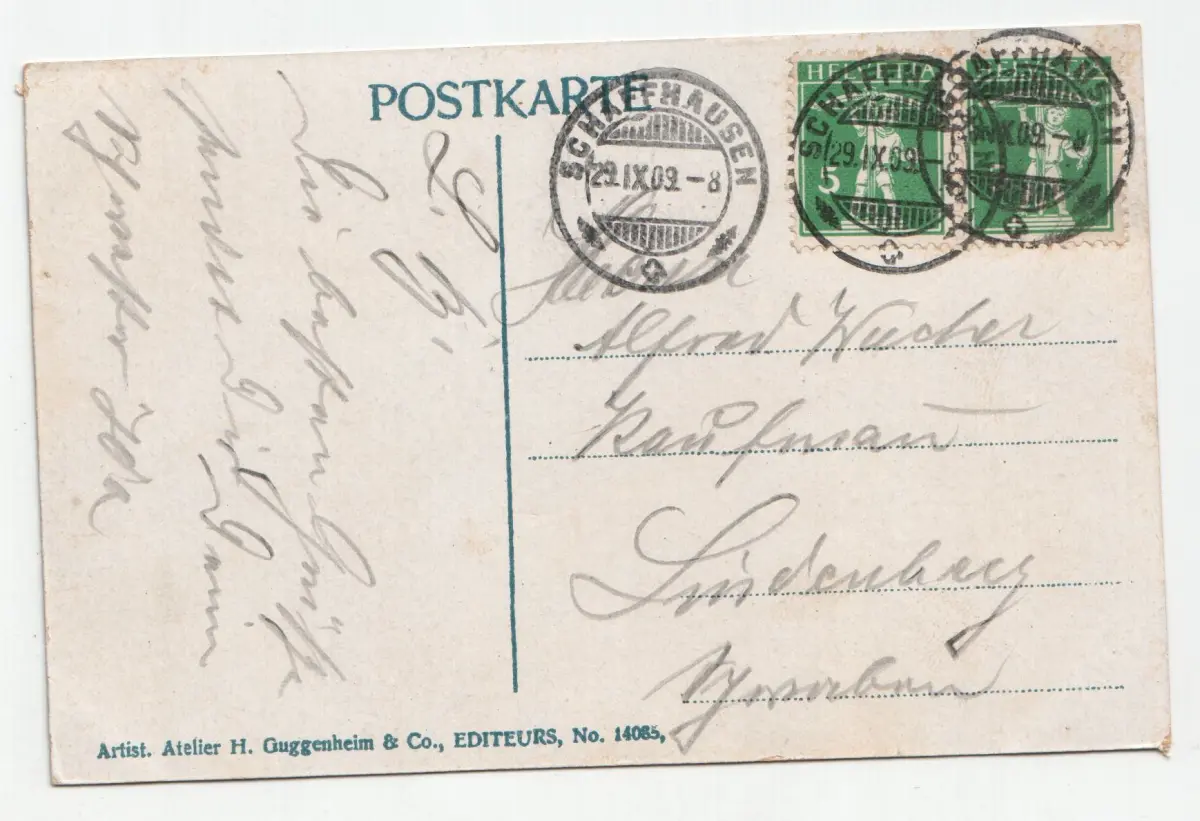 POSTKARTE
SCHAFFHAUSEN
29.IX.09.–8
HELVETIA
5
SCHAFFHAUSEN
29.IX.09.–8
HELVETIA
SCHAFFHAUSEN
IX.09.–8
L. B.
Die besten Grüße
sendet Dir Deine
Schwester Ida
Alfred Wucher
Kaufman
Lindenberg
Schwaben
Artist. Atelier H. Guggenheim & Co., EDITEURS, No. 14085,